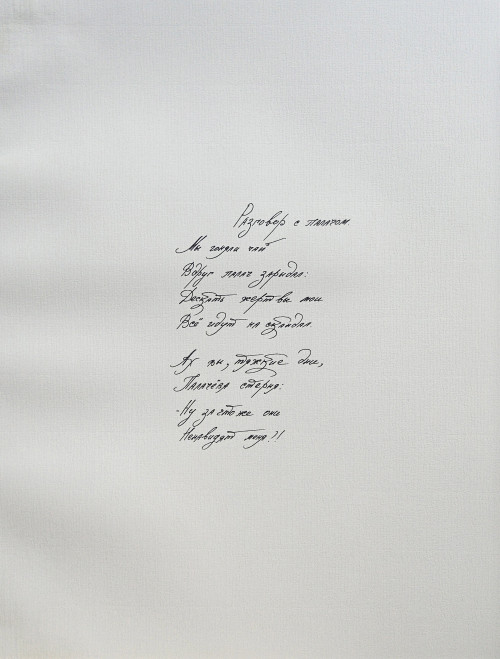 Разговор с палачом.
Мы гоняли чай
Вдруг палач зарыдал:
Дескать жертвы мои
Всё идут на скандал.
Ах вы, тяжкие дни,
Палачёва стерня:
-Ну за что же они
Ненавидят меня?!!